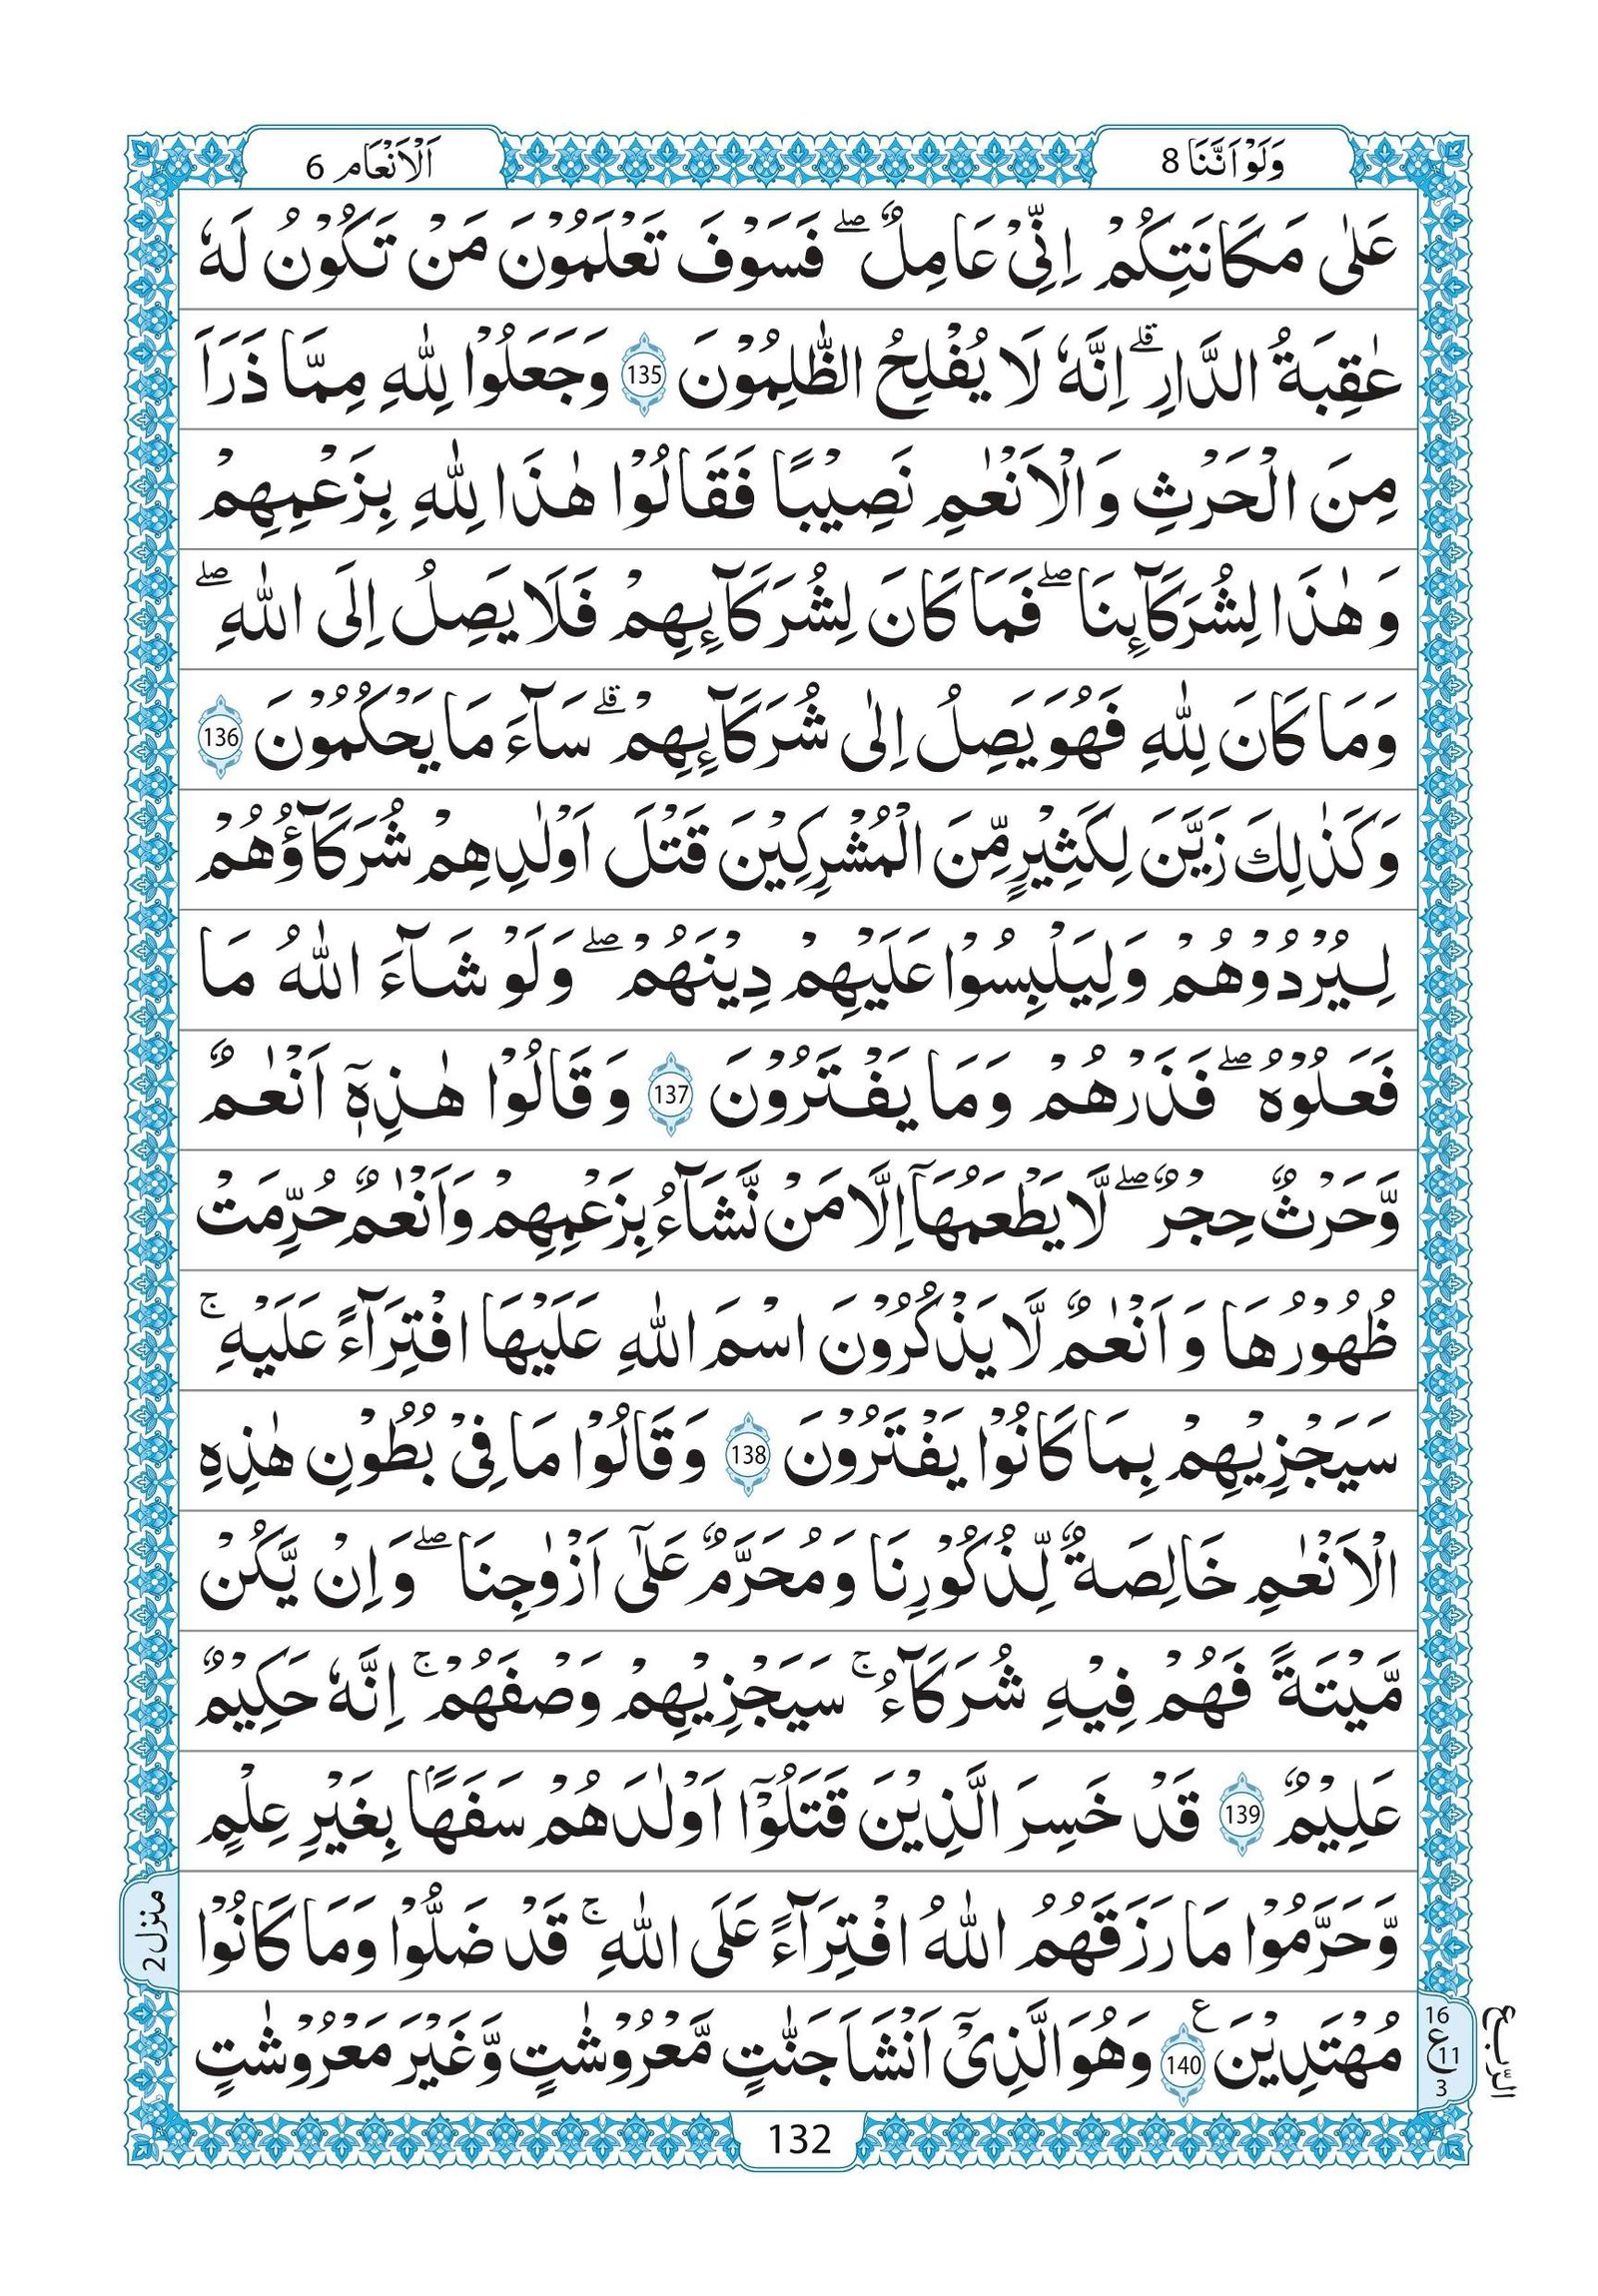 وَلَوْاَنَّنَا 8
اَلْاَنْعَام 6
عَلٰى مَكَانَتِكُمْ اِنِّىْ عَامِلٌ ۖ فَسَوْفَ تَعْلَمُوْنَ مَنْ تَكُوْنُ لَهٗ
عٰقِبَةُ الدَّارِ ۗ اِنَّهٗ لَا يُفْلِحُ الظّٰلِمُوْنَ 135 وَجَعَلُوْا لِلّٰهِ مِمَّا ذَرَاَ
مِنَ الْحَرْثِ وَالْاَنْعٰمِ نَصِيْبًا فَقَالُوْا هٰذَا لِلّٰهِ بِزَعْمِهِمْ
وَهٰذَا لِشُرَكَآئِنَا ۖ فَمَا كَانَ لِشُرَكَآئِهِمْ فَلَا يَصِلُ اِلَى اللّٰهِ ۖ
وَمَا كَانَ لِلّٰهِ فَهُوَ يَصِلُ اِلٰى شُرَكَآئِهِمْ ۗ سَآءَ مَا يَحْكُمُوْنَ 136
وَكَذٰلِكَ زَيَّنَ لِكَثِيْرٍ مِّنَ الْمُشْرِكِيْنَ قَتْلَ اَوْلٰدِهِمْ شُرَكَآؤُهُمْ
لِيُرْدُوْهُمْ وَلِيَلْبِسُوْا عَلَيْهِمْ دِيْنَهُمْ ۖ وَلَوْ شَآءَ اللّٰهُ مَا
فَعَلُوْهُ ۖ فَذَرْهُمْ وَمَا يَفْتَرُوْنَ 137 وَقَالُوْا هٰذِهٖٓ اَنْعٰمٌ
وَّحَرْثٌ حِجْرٌ ۖ لَّا يَطْعَمُهَآ اِلَّا مَنْ نَّشَآءُ بِزَعْمِهِمْ وَاَنْعٰمٌ حُرِّمَتْ
ظُهُوْرُهَا وَاَنْعٰمٌ لَّا يَذْكُرُوْنَ اسْمَ اللّٰهِ عَلَيْهَا افْتِرَآءً عَلَيْهِ ۚ
سَيَجْزِيْهِمْ بِمَا كَانُوْا يَفْتَرُوْنَ 138 وَقَالُوْا مَا فِىْ بُطُوْنِ هٰذِهِ
الْاَنْعٰمِ خَالِصَةٌ لِّذُكُوْرِنَا وَمُحَرَّمٌ عَلٰٓى اَزْوٰجِنَا ۖ وَاِنْ يَّكُنْ
مَّيْتَةً فَهُمْ فِيْهِ شُرَكَآءُ ۚ سَيَجْزِيْهِمْ وَصْفَهُمْ ۚ اِنَّهٗ حَكِيْمٌ
عَلِيْمٌ 139 قَدْ خَسِرَ الَّذِيْنَ قَتَلُوْٓا اَوْلٰدَهُمْ سَفَهًۢا بِغَيْرِ عِلْمٍ
وَّحَرَّمُوْا مَا رَزَقَهُمُ اللّٰهُ افْتِرَآءً عَلَى اللّٰهِ ۚ قَدْ ضَلُّوْا وَمَا كَانُوْا
مُهْتَدِيْنَ ع 140 وَهُوَ الَّذِىْٓ اَنْشَاَ جَنّٰتٍ مَّعْرُوْشٰتٍ وَّغَيْرَ مَعْرُوْشٰتٍ
منزل2
16
ع
11
3
الرّبع
132